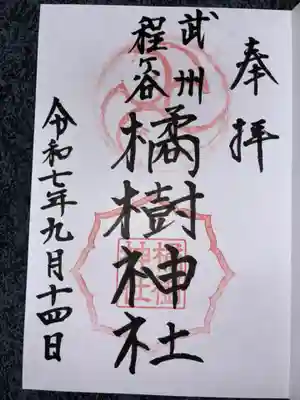 奉拝
武州
程ヶ谷
橘樹神社
橘樹
神社
令和七年九月十四日